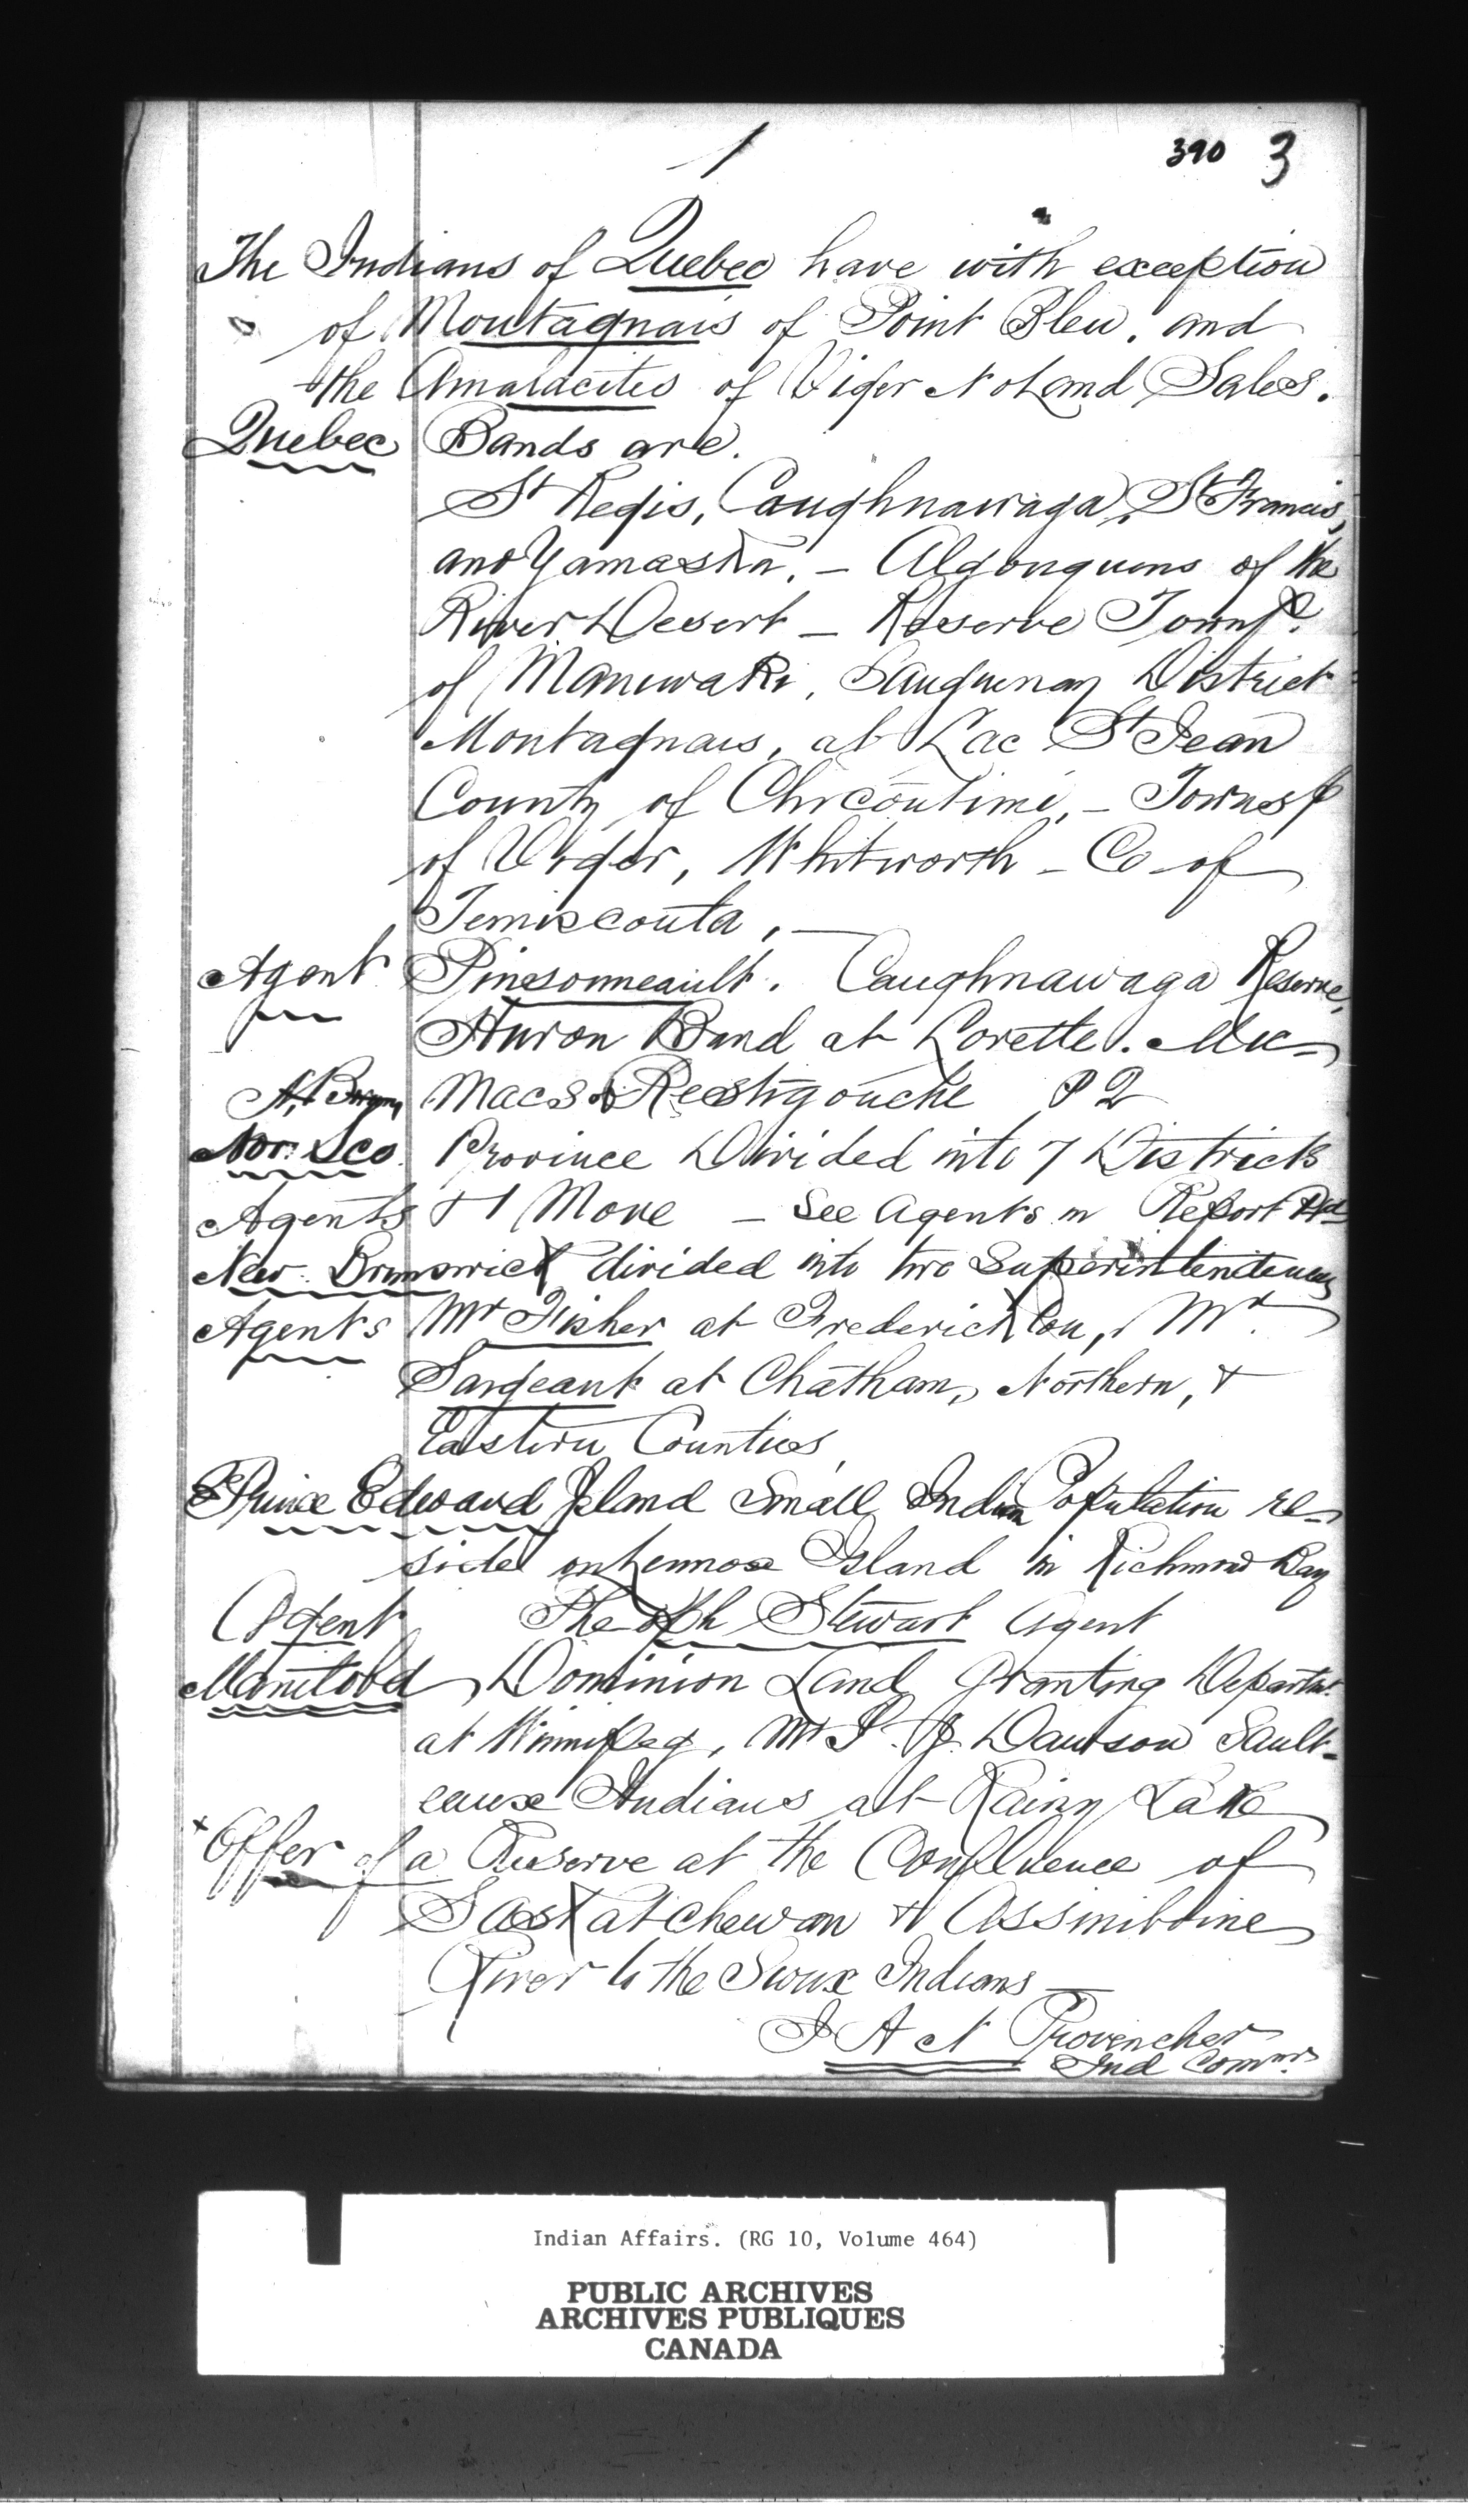 1
390 3
The Indians of Quebec have with exception
of Montagnais of Point Bleu. and
the Amalacites of Viger No Land Sales.
Quebec Bands are.
St Regis, Caughnawaga, St Francis,
and Yamaska. - Algonquins of the
River Desert - Reserve Townsp.
of Maniwaki, Sauguenay District
Montagnais, at Lac St Jean
County of Chicoutimi, - Townsp
of Viger, Whitworth - Co of
Temiscouta, -
Agent Pinsonneault. Caughnawaga Reserve,
Huron Band at Lorette. Mic-
macs of Reestigouche P 2
Nov: Sco. Province Divided into 7 Districts
Agents + 1 More - See Agents in Report
New Brunswick divided into two Superintendencies
Agents Mr Fisher at Fredericton, Mr.
Sargeant at Chatham, Northern, &
Eastern Counties,
Prince Edward Island Small Indian Population re-
side on Lennox Island in Richmond Bay
Agent Theoph Stewart Agent
Manitoba, Dominion Land Granting Departmt.
at Winnipeg, Mr S. J. Dawson Sault-
eaux Indians at Rainy Lake
x Offer of a Reserve at the Confluence of
Saskatchewan & Assiniboine
River to the Sioux Indians -
J A N Provencher
Ind Commr.
Indian Affairs. (RG 10, Volume 464)
PUBLIC ARCHIVES
ARCHIVES PUBLIQUES
CANADA